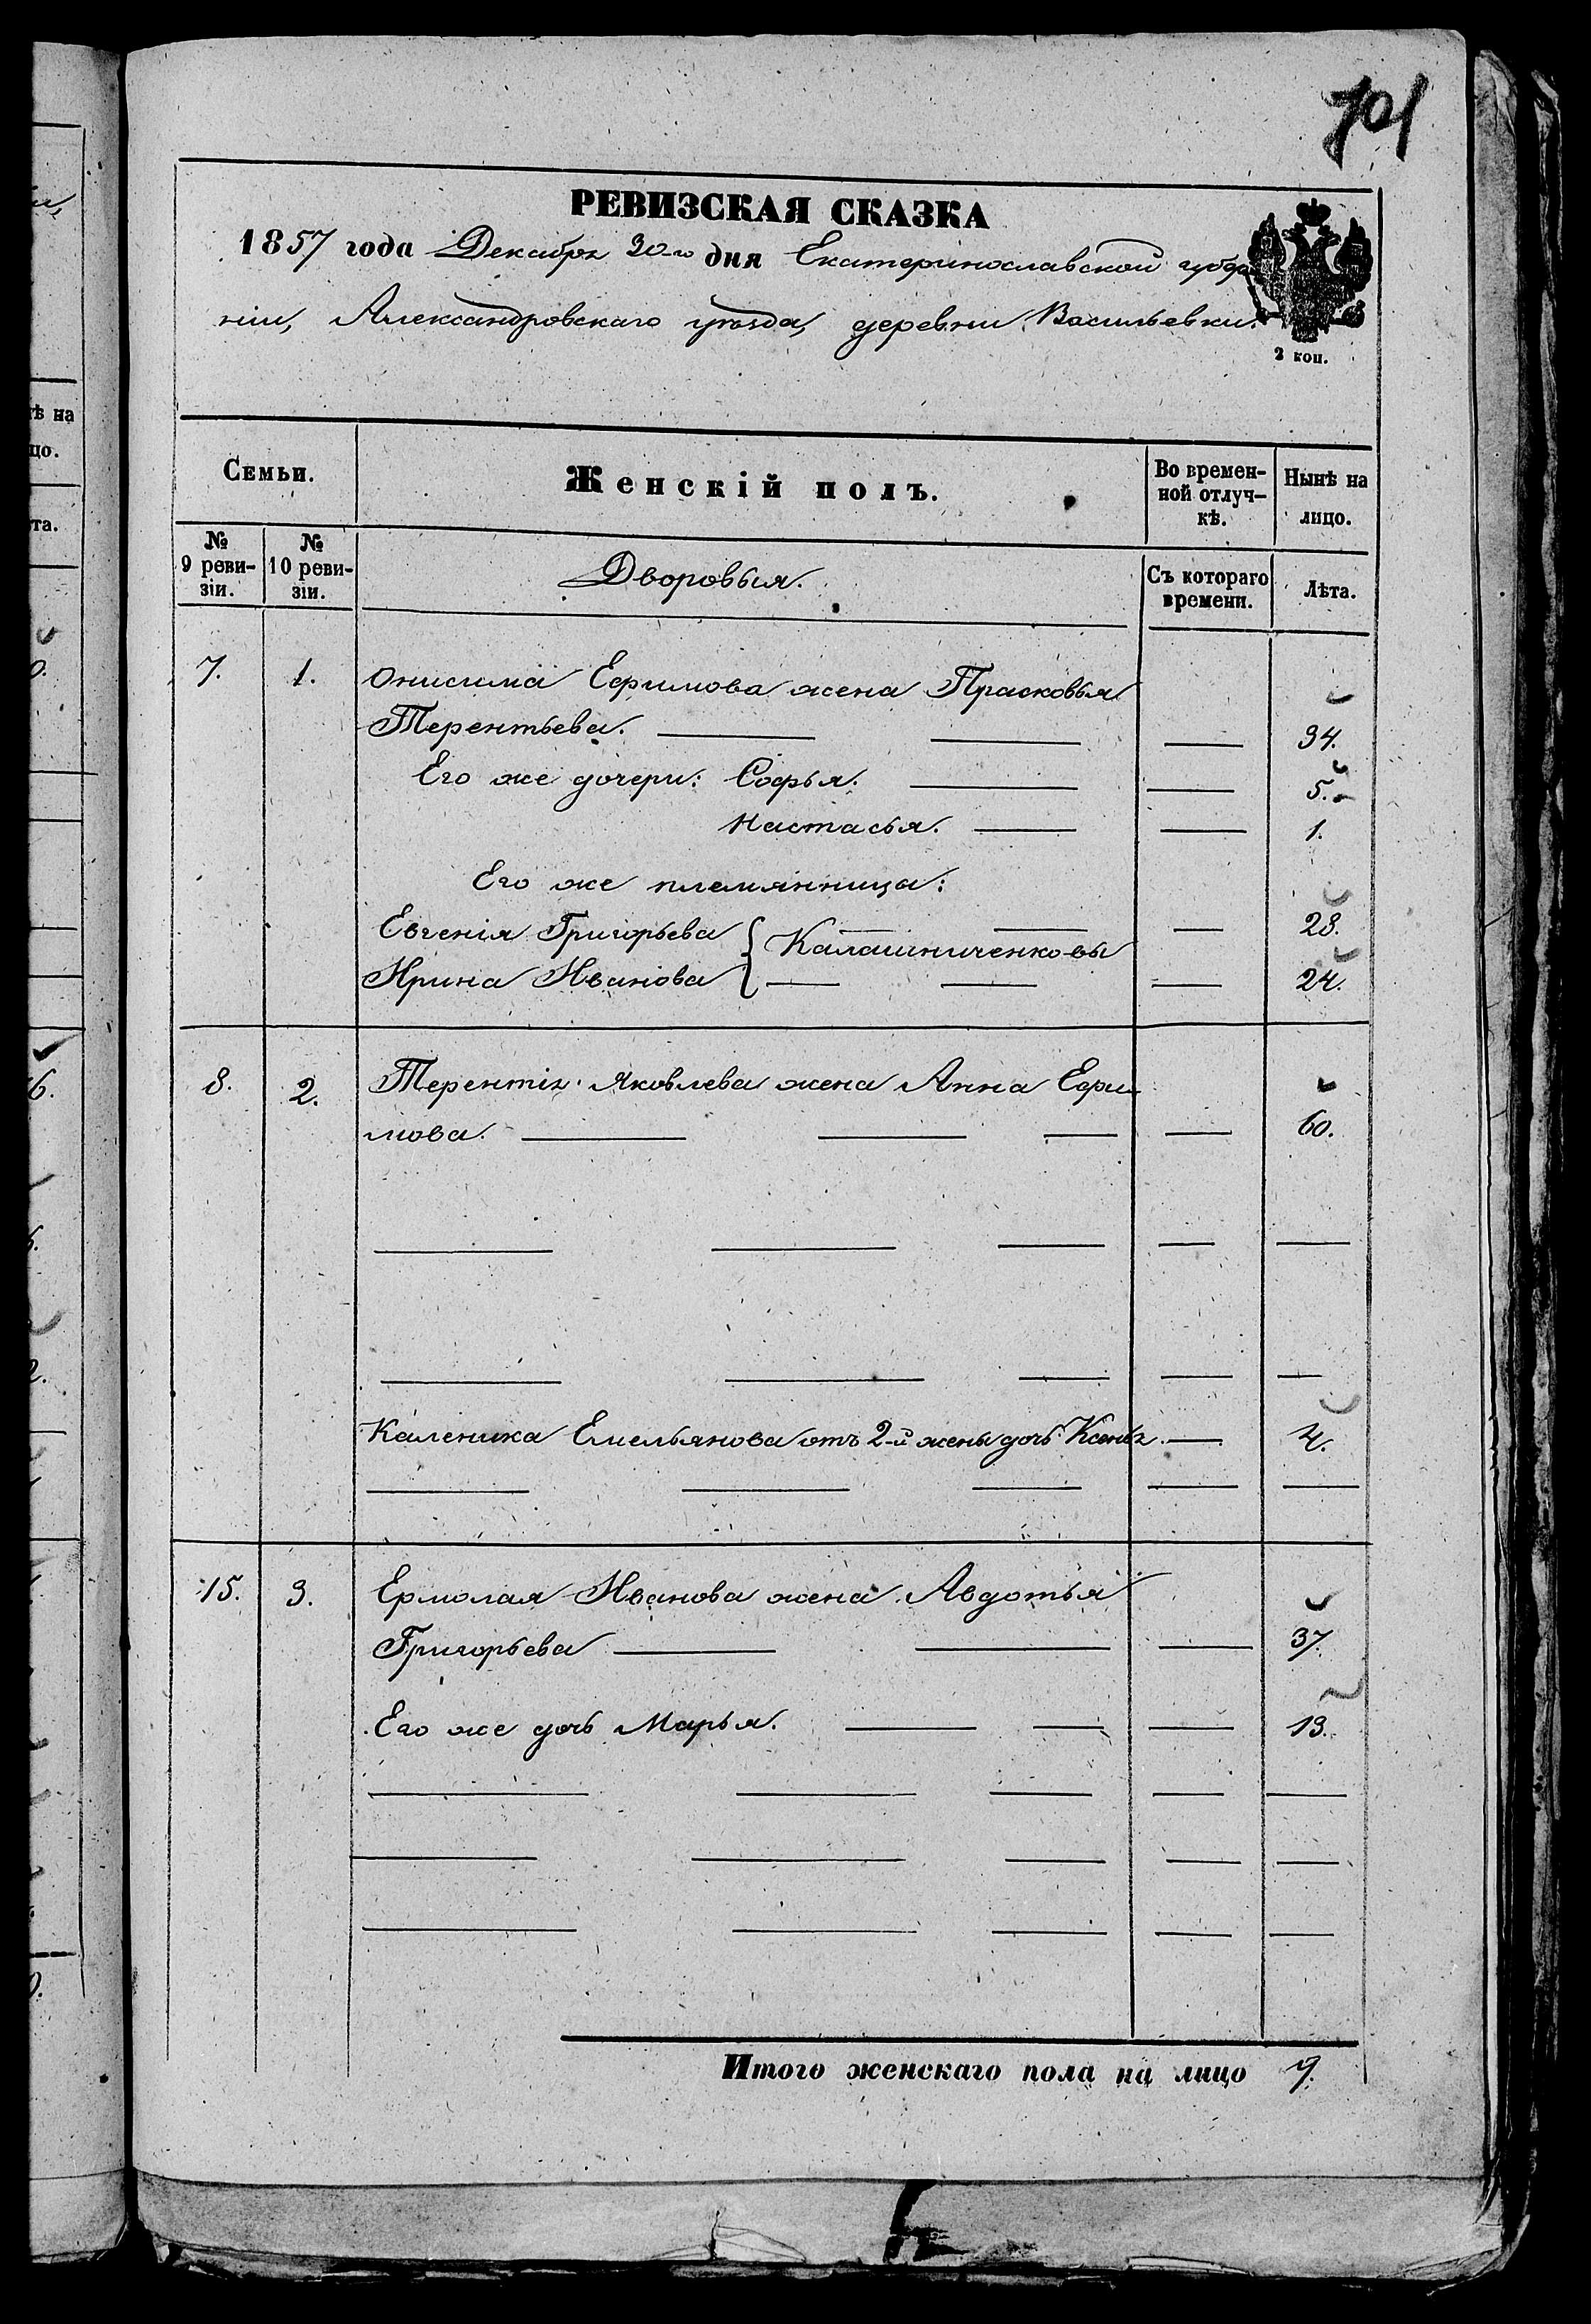 701
РЕВИЗСКАЯ СКАЗКА
1857 года Декабря 30-го дня Екатеринославской губер
ніи, Александровскаго уѣзда, деревни Васильевки.
2 коп.
Семьи.
Женскій полъ.
Во времен-
ной отлуч-
кѣ.
Нынѣ на
лицо.
№
9 реви-
зіи.
№
10 реви-
зіи.
Дворовыя.
Съ котораго
времени.
Лѣта.
7. 1. Онисима Ефимова жена Прасковья
Терентьева. 34.
Его же дочери: Софья. 5.
Настасья. 1.
Его же племянницы:
Евгенія Григорьева 28.
Калашниченковы
Ирина Иванова 24.
8. 2. Терентія Яковлева жена Анна Ефи-
мова. 60.
Каленика Емельянова отъ 2-й жены дочь Ксенія 4.
15. 3. Ермолая Иванова жена Авдотья
Григорьева 37.
Его же дочь Марья. 13.
Итого женскаго пола на лицо 9.
ѣ на
цо.
та.
0.
6.